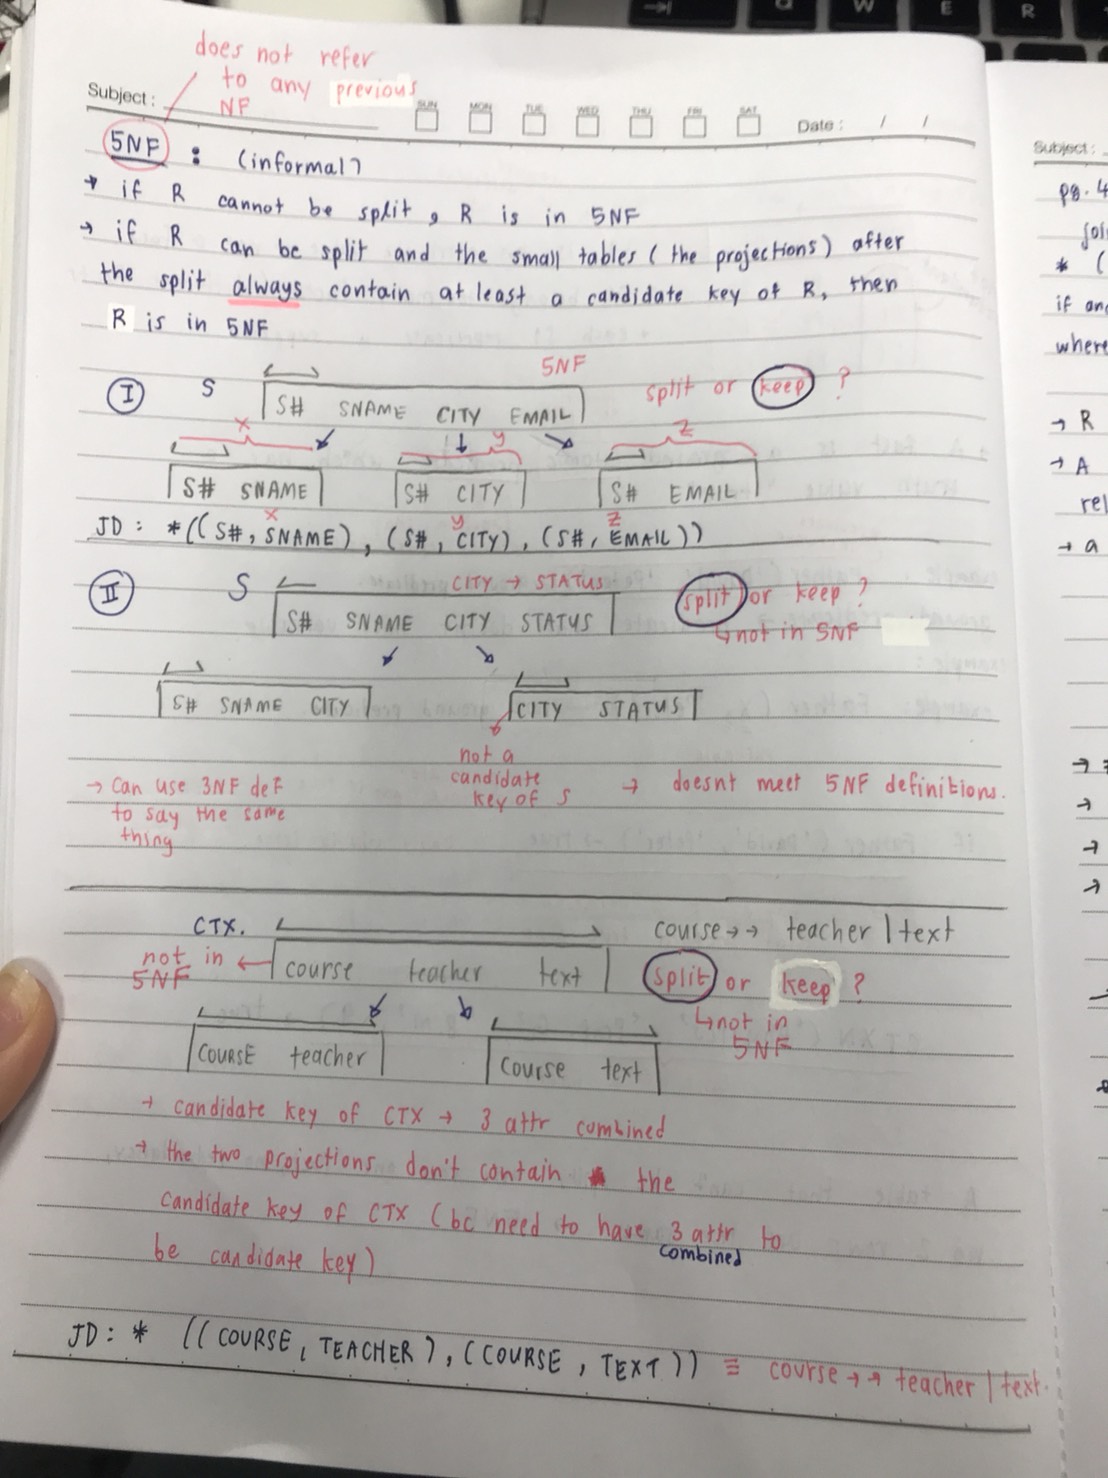 W E R
does not refer
to any previous
NF
Subject :
SUN MON TUE WED THU FRI SAT
Date : / /
5NF : (informal)
→ if R cannot be split, R is in 5NF
→ if R can be split and the small tables (the projections) after
the split always contain at least a candidate key of R, then
R is in 5NF
5NF
I S S# SNAME CITY EMAIL split or keep ?
x y z
S# SNAME S# CITY S# EMAIL
x y z
JD : *((S#, SNAME), (S#, CITY), (S#, EMAIL))
II S CITY → STATUS split or keep ?
S# SNAME CITY STATUS
↳ not in 5NF
S# SNAME CITY CITY STATUS
not a
candidate
key of S
→ doesnt meet 5NF definitions.
→ Can use 3NF def
to say the same
thing
CTX. course →→ teacher | text
not in
5NF
← course teacher text split or keep ?
↳ not in
5NF
COURSE teacher Course text
→ candidate key of CTX → 3 attr combined
→ the two projections don't contain the
candidate key of CTX (bc need to have 3 attr to
combined
be candidate key)
JD : * ((COURSE, TEACHER), (COURSE, TEXT)) ≡ course →→ teacher | text.
Subject :
pg. 4
* (
where
→ R
→ A
rel
→ a